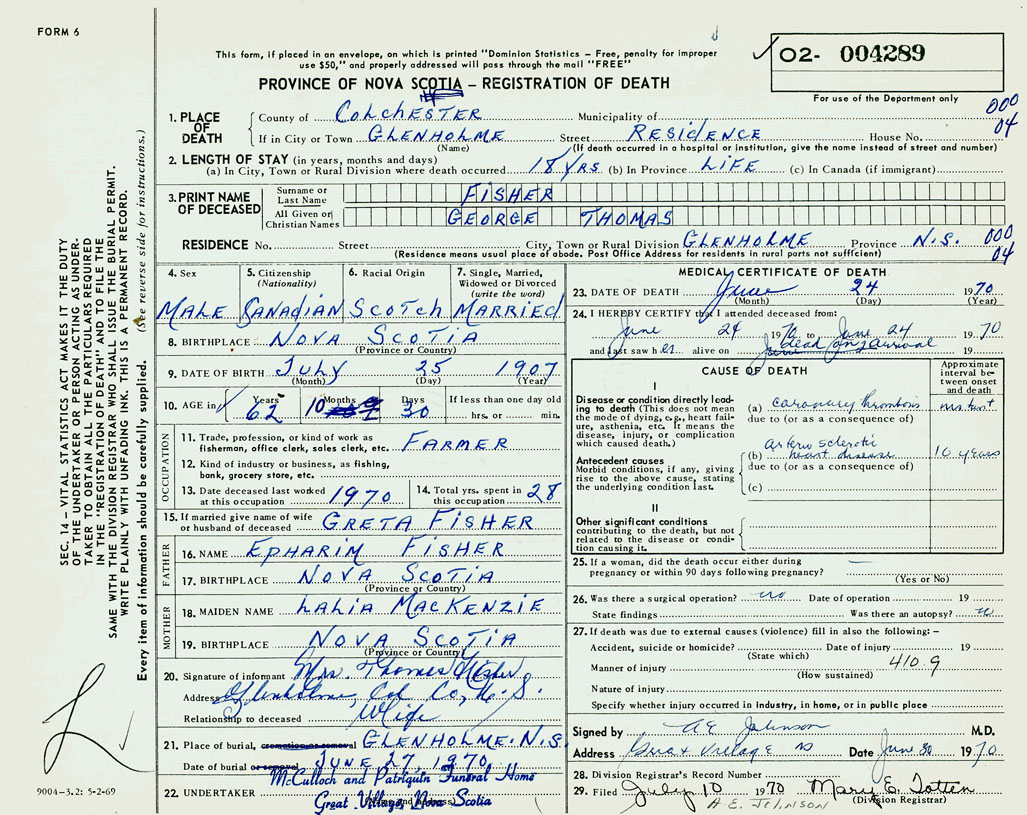 FORM 6
This form, if placed in an envelope, on which is printed "Dominion Statistics – Free, penalty for improper
use $50," and properly addressed will pass through the mail "FREE"
O2- 004289
For use of the Department only
PROVINCE OF NOVA SCOTIA – REGISTRATION OF DEATH
000
04
1. PLACE OF DEATH
County of COLCHESTER Municipality of
If in City or Town GLENHOLME Street RESIDENCE House No.
(Name) (If death occurred in a hospital or institution, give the name instead of street and number)
2. LENGTH OF STAY (in years, months and days)
(a) In City, Town or Rural Division where death occurred 18 YRS (b) In Province LIFE (c) In Canada (if immigrant)
3. PRINT NAME OF DECEASED
Surname or Last Name FISHER
All Given or Christian Names GEORGE THOMAS
RESIDENCE No. Street City, Town or Rural Division GLENHOLME Province N.S. 000
04
(Residence means usual place of abode. Post Office Address for residents in rural parts not sufficient)
4. Sex 5. Citizenship (Nationality) 6. Racial Origin 7. Single, Married, Widowed or Divorced (write the word)
MALE CANADIAN SCOTCH MARRIED
8. BIRTHPLACE NOVA SCOTIA
(Province or Country)
9. DATE OF BIRTH JULY 25 1907
(Month) (Day) (Year)
10. AGE in Years Months Days If less than one day old
62 10 30 hrs. or min.
OCCUPATION
11. Trade, profession, or kind of work as
fisherman, office clerk, sales clerk, etc. FARMER
12. Kind of industry or business, as fishing,
bank, grocery store, etc.
13. Date deceased last worked at this occupation 1970 14. Total yrs. spent in this occupation 28
15. If married give name of wife
or husband of deceased GRETA FISHER
FATHER
16. NAME EPHARIM FISHER
17. BIRTHPLACE NOVA SCOTIA
(Province or Country)
MOTHER
18. MAIDEN NAME LALIA MACKENZIE
19. BIRTHPLACE NOVA SCOTIA
(Province or Country)
20. Signature of informant Mrs. Thomas Fisher
Address Glenholme, Col Co, N.S.
Relationship to deceased Wife
21. Place of burial, cremation or removal GLENHOLME. N.S.
Date of burial or removal JUNE 27, 1970
McCulloch and Patriquin Funeral Home
22. UNDERTAKER Great Village, Nova Scotia
MEDICAL CERTIFICATE OF DEATH
23. DATE OF DEATH June 24 1970
(Month) (Day) (Year)
24. I HEREBY CERTIFY that I attended deceased from:
June 24 1970 to June 24 1970
and last saw h er alive on dead on arrival 19
CAUSE OF DEATH
Approximate interval between onset and death
I
Disease or condition directly leading to death (This does not
mean the mode of dying, e.g., heart failure, asthenia, etc. It means the
disease, injury, or complication
which caused death.)
(a) coronary thrombosis instant
due to (or as a consequence of)
Antecedent causes
Morbid conditions, if any, giving
rise to the above cause, stating
the underlying condition last.
(b) arterio sclerotic heart disease 10 years
due to (or as a consequence of)
(c)
II
Other significant conditions
contributing to the death, but not
related to the disease or condition causing it.
25. If a woman, did the death occur either during
pregnancy or within 90 days following pregnancy? —
(Yes or No)
26. Was there a surgical operation? no Date of operation 19
State findings Was there an autopsy? no
27. If death was due to external causes (violence) fill in also the following:–
Accident, suicide or homicide? Date of injury 19
(State which)
Manner of injury 410.9
(How sustained)
Nature of injury
Specify whether injury occurred in Industry, in home, or in public place
Signed by A E Johnson M.D.
Address Great Village NS Date June 30 1970
28. Division Registrar's Record Number
29. Filed July 10 1970 Mary E. Totten
A.E. JOHNSON (Division Registrar)
SEC. 14 – VITAL STATISTICS ACT MAKES IT THE DUTY
OF THE UNDERTAKER OR PERSON ACTING AS UNDERTAKER
TO OBTAIN ALL THE PARTICULARS REQUIRED
IN THE "REGISTRATION OF DEATH" AND TO FILE THE
SAME WITH THE DIVISION REGISTRAR WHO SHALL ISSUE THE BURIAL PERMIT.
WRITE PLAINLY WITH UNFADING INK. THIS IS A PERMANENT RECORD.
Every item of information should be carefully supplied. (See reverse side for instructions.)
9004–3.2: 5-2-69